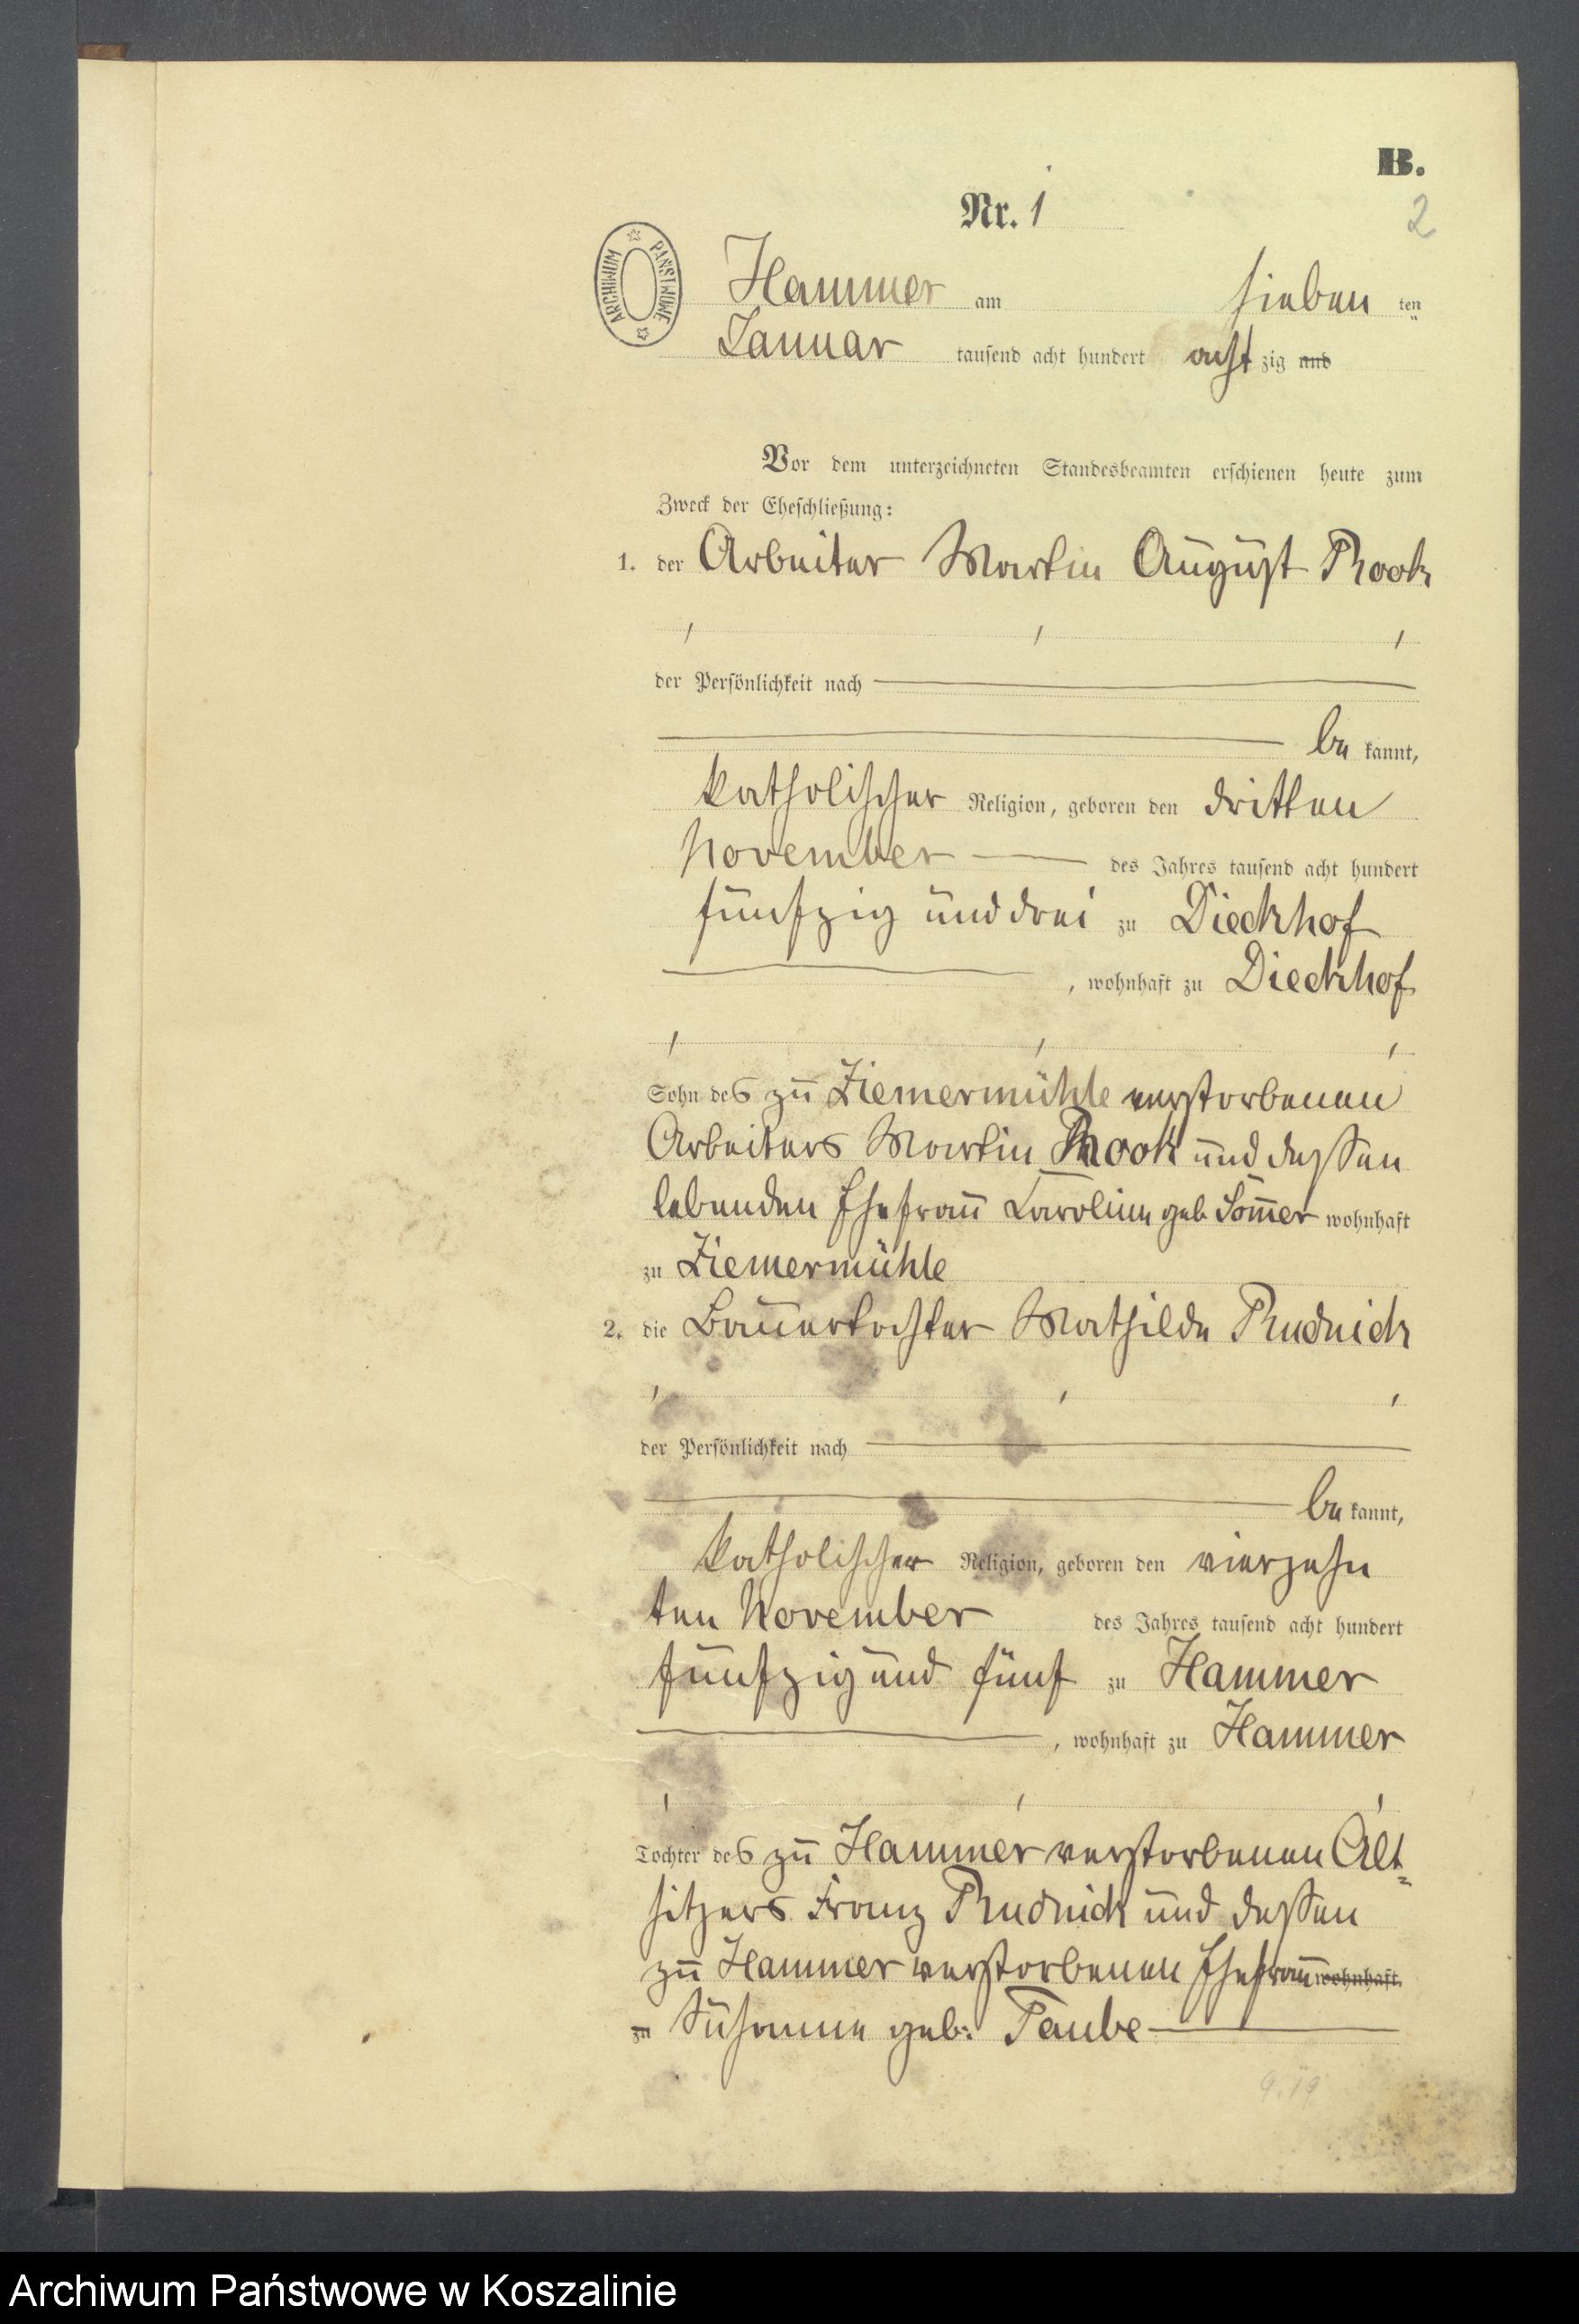 B.
Nr. 1
2
ARCHIWUM PAŃSTWOWE
Hammer am sieben ten
Januar tausend acht hundert acht zig und
Vor dem unterzeichneten Standesbeamten erschienen heute zum
Zweck der Eheschließung:
1. der Arbeiter Martin August Rook
der Persönlichkeit nach
be kannt,
katholischer Religion, geboren den dritten
November des Jahres tausend acht hundert
fünfzig und drei zu Dieckhof
, wohnhaft zu Dieckhof
Sohn des zu Ziemermühle verstorbenen
Arbeiters Martin Rook und dessen
lebenden Ehefrau Caroline geb. Som̅er wohnhaft
zu Ziemermühle
2. die Bauertochter Mathilde Rudnick
der Persönlichkeit nach
be kannt,
katholischer Religion, geboren den vierzehn
ten November des Jahres tausend acht hundert
fünfzig und fünf zu Hammer
, wohnhaft zu Hammer
Tochter des zu Hammer verstorbenen Alt=
sitzers Franz Rudnick und dessen
zu Hammer verstorbenen Ehefrau wohnhaft
zu Susanne geb: Taube
Archiwum Państwowe w Koszalinie